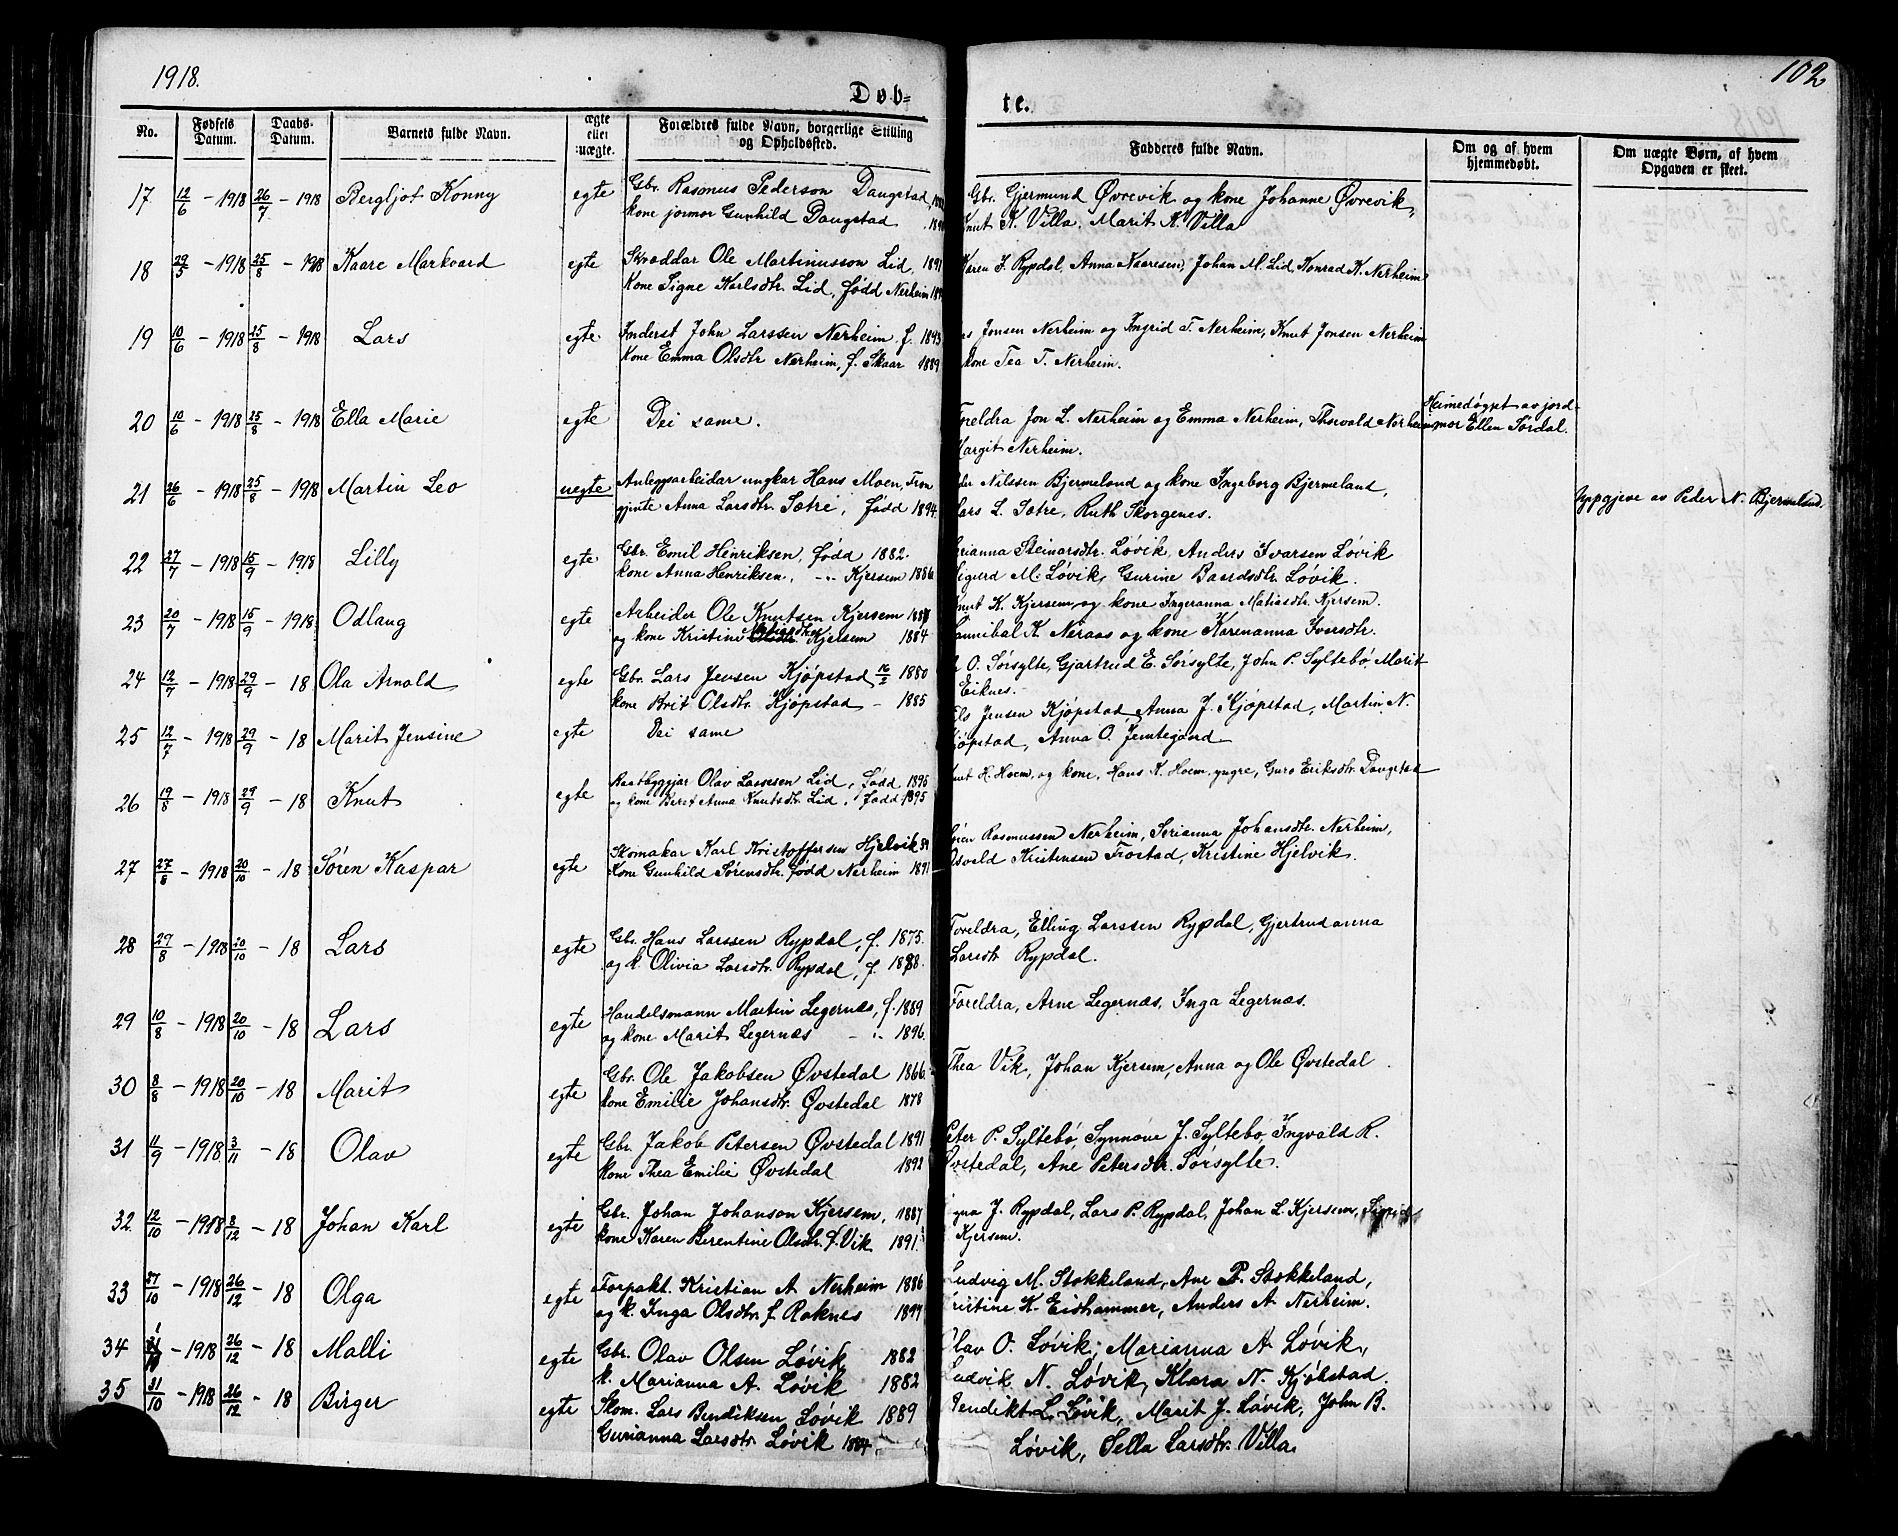 1918.
102
Døb=
te.
No.
Fødsels
Datum.
Daabs-
Datum.
Barnets fulde Navn.
ægte
eller
uægte.
Forældres fulde Navn, borgerlige Stilling
og Opholdssted.
Fadderes fulde Navn.
Om og af hvem
hjemmedøbt.
Om uægte Børn, af hvem
Opgaven er skeet.
17 12/6 - 1918 26/7 - 1918 Bergljot Konny egte Gbr. Rasmus Pederson Daugstad
kone jormor Gunhild Daugstad
Gbr. Gjermund Øvrevik og kone Johanne Øvrevik,
Knut K. Villa, Marit K. Villa
18 29/5 - 1918 25/8 - 1918 Kaare Markvard egte Skræddar Ole Martinusson Lid, 1891
kone Signe Karlsdtr. Lid, født Nerheim
Karen J. Rypdal, Anna Naeresen, Johan M. Lid, Konrad K. Nerheim
19 10/6 - 1918 25/8 - 1918 Lars egte Inderst John Larssen Nerheim f. 1843
kone Emma Olsdtr Nerheim, f. Skaar 1889
Jonsen Nerheim og Ingrid T. Nerheim, Knut Jonsen Nerheim
kone Tea T. Nerheim.
20 10/6 - 1918 25/8 - 1918 Ella Marie egte Dei same.
Foreldra Jon L. Nerheim og Emma Nerheim, Thorvald Nerheim
Margit Nerheim.
Heimedøypt av jord-
mor Ellen Sørdal.
21 26/6 - 1918 25/8 - 1918 Martin Leo uegte Anleggsarbeidar ungkar Hans Moen,
gjente Anna Larsdtr. Sætre, Født 1894.
Nilssen Bjermeland og kone Ingeborg Bjermeland,
Lars L. Sætre, Ruth Skorgenes.
Uppgjeve av Peder N. Bjermeland.
22 27/7 - 1918 15/9 - 1918 Lilly egte Gbr. Emil Henriksen, født 1882.
kone Anna Henriksen, -"- Kjersem 1886
Steinarsdtr. Løvik, Anders Ivarsen Løvik
Sigurd M. Løvik, Gurine Baardsdtr. Løvik.
23 20/7 - 1918 15/9 - 1918 Odlaug egte Arbeider Ole Knutsen Kjersem
og kone Kristine Kjersem 1884
Knut K. Kjersem og kone Ingeranna Matiasdtr. Kjersem.
Hannibal K. Neraas og kone Karenanna Iversdtr.
24 12/7 - 1918 29/9 - 18 Ola Arnold egte Gbr. Lars Jensen Kjøpstad 1880
kone Brit Olsdtr. Kjøpstad - 1885
O. Sørsylte, Gjartrud E. Sørsylte, John P. Syltebø, Marit
Eiknes.
25 12/7 - 1918 29/9 - 18 Marit Jensine egte Dei same
Jensen Kjøpstad, Anna J. Kjøpstad, Martin N.
Kjøpstad, Anna O. Jemtegaard
26 19/8 - 1918 29/9 - 18 Knut egte Baatbyggjar Olav Lassesen Lid, Født 1895
og kone Beret Anna Knutsdtr. Lid, Født 1895
Knut H. Hoem, og kone, Hans K. Hoem, yngre, Guro Eriksdtr. Daugstad
27 27/8 - 1918 20/10 - 18 Søren Kaspar egte Skomakar Karl Kristoffersen Hjelvik
Kone Gunhild Sørensdtr. født Nerheim 1891
Søren Rasmussen Nerheim, Serianna Johansdtr. Nerheim,
Osvald Kristensen Frostad, Kristine Hjelvik.
28 29/8 - 1918 20/10 - 18 Lars egte Gbr. Hans Larssen Rypdal, f. 1875.
og k. Olivia Larsdtr. Rypdal, f. 1888.
Foreldra, Elling Larssen Rypdal, Gjertrudanna
Larsdtr Rypdal.
29 10/8 - 1918 20/10 - 18 Lars egte Handelsmann Martin Legernæs, f. 1889
og kone Marit Legernæs -"- 1896.
Foreldra, Arne Legernæs, Inga Legernæs.
30 8/8 - 1918 20/10 - 18 Marit egte Gbr. Ole Jakobsen Øvstedal 1866.
kone Emilie Johansdtr. Øvstedal 1878
Thea Vik, Johan Kjersem, Anna og Ole Øvstedal
31 11/9 - 1918 3/11 - 18 Olav egte Gbr. Jakob Petersen Øvstedal 1891
kone Thea Emilie Øvstedal 1892
Peter P. Syltebø, Synnøve J. Syltebø, Ingvald R.
Øvstedal, Ane Petersdtr. Sørsylte.
32 12/10 - 1918 8/12 - 18 Johan Karl egte Gbr. Johan Johanson Kjersem, 1887
kone Karen Berentine Olsdtr. f. Vik 1891.
J. Rypdal, Lars P. Rypdal, Johan L. Kjersem,
Kjersem.
33 27/10 - 1918 26/12 - 18 Olga egte Forpakt. Kristian A. Nerheim 1886
og k. Inga Olsdtr. f. Roknes
Ludvig M. Stokkeland, Ane P. Stokkeland,
Kristine K. Eidhammer, Anders A. Nerheim.
34 - 1918 26/12 - 18 Malli egte Gbr. Olav Olsen Løvik 1882
k. Marianna A. Løvik 1882
Olav O. Løvik, Marianna A. Løvik,
Ludvik N. Løvik, Klara N. Kjøkstad.
35 31/10 - 1918 26/12 - 18 Birger egte Skom. Lars Bendiksen Løvik 1889
Gurianna Larsdtr. Løvik 1884.
Bendikt L. Løvik, Marit J. Løvik, John B.
Løvik, Sella Larsdtr. Villa.